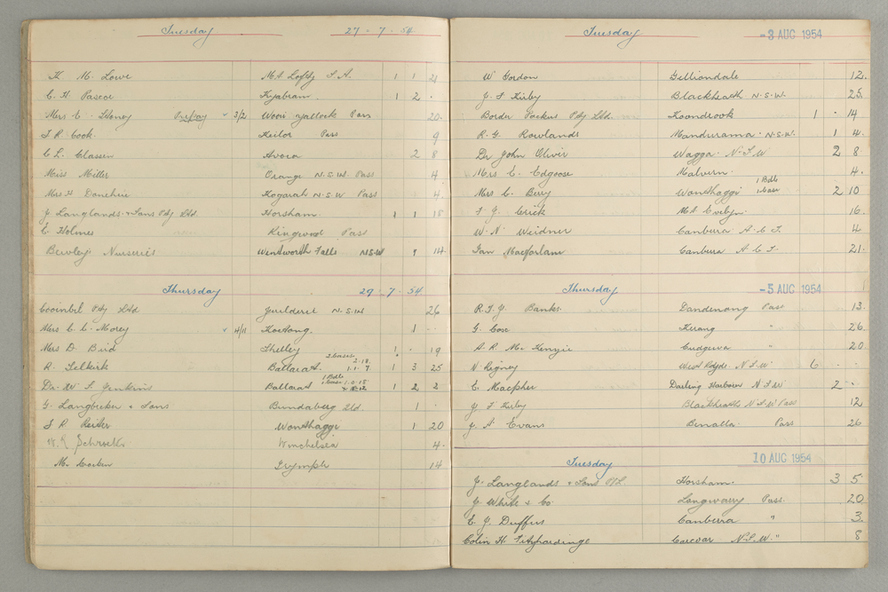 Tuesday 27-7-54
K. M. Lowe Mt Lofty S.A. 1 1 21
C. H. Pascoe Kyabram 1 2 -
Mrs C. Prepay 3/2 Pass 20
J. R. Cook Keilor Pass 9
C. L. Classen Avoca 2 8
Miss Miller Orange N.S.W. Pass 4
Mrs H Donohue Kogarah N.S.W Pass 4
J. Langlands & Sons Pty Ltd. Horsham 1 1 18
E Holmes Ringwood Pass
Nurseries Wentworth Falls N.S.W 14
Thursday 29-7-54
Pty Ltd N.S.W 26
Mrs C. C. Morey 4/11 1
Mrs D. Bird Shelley 1 - 19
R. Selkirk Ballarat 1 3 25
Dr. W. S. Jenkins Ballarat 1 2 2
G. Langbecker & Sons Bundaberg 1
S R Reiter Wonthaggi 1 20
W. K. Winchelsea 4
M. Irymple 14
Tuesday -3 AUG 1954
W Gordon 12
J. F. Kirby Blackheath N.S.W. 25
Border Packers Pty Ltd. Koondrook 1 - 14
R. G. Rowlands Mandurama N.S.W. 1 4
Dr John Oliver Wagga N.S.W 2 8
Mrs E. Edgoose Malvern 4
Mrs C. Berry Wonthaggi 2 10
Mt Evelyn 16
W. N. Weidner Canberra A.C.T. 4
Ian Macfarlane Canberra A.C.T. 21
Thursday -5 AUG 1954
R. T. J. Banks Dandenong Pass 13
G. Cox " 26
A. R. Mc Kenzie Cudgewa " 20
N. Rigney West Ryde N.S.W. 6
Darling Harbour N.S.W 2
J. F. Kirby Blackheath N.S.W Pass 12
J. A Evans Benalla Pass 26
Tuesday 10 AUG 1954
J. Langlands & Sons P/L Horsham 3 5
J. White & Co Longwarry Pass 20
E. J. Duffus Canberra " 3
Colin H. Fitzhardinge Carcoar N.S.W. " 8